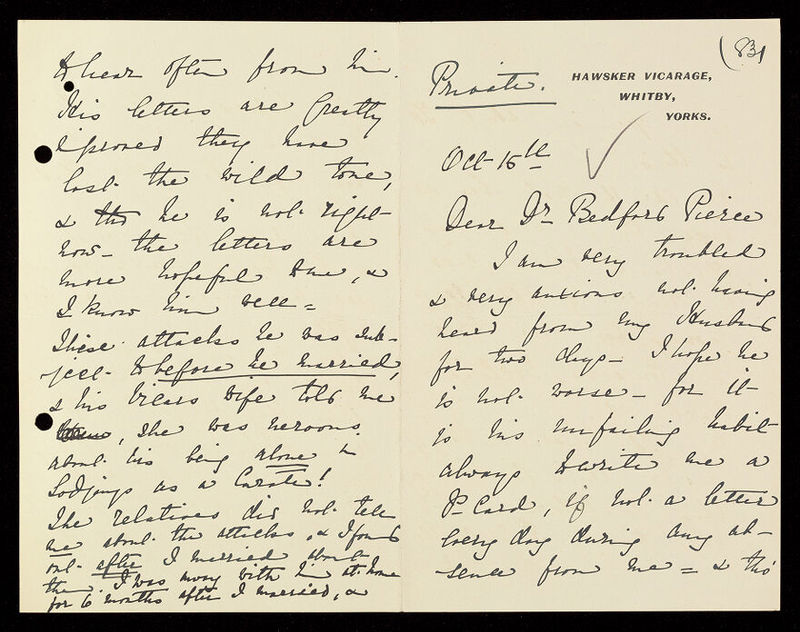 to hear often from him.
His letters are greatly
improved they have
lost the wild tone,
& tho he is not right
now – the letters are
more hopeful tone, &
I know him well =
These attacks he was sub-
ject to before he married,
& his Vicars wife told me
, she was nervous
about his being alone in
Lodgings as a Curate!
The relatives did not tell
me about the attacks, & I found
out after I married about
them. I was with him at home
for 6 months after I married, &
(83)
Private.
HAWSKER VICARAGE,
WHITBY,
YORKS.
Oct 15th
Dear Dr Bedford Pierce
I am very troubled
& very anxious not having
heard from my Husband
for two days – I hope he
is not worse – for it
is his unfailing habit
always to write me a
P-Card, if not a letter
every day during any ab-
sence from me = & tho'